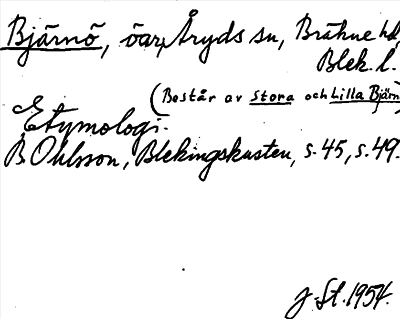 Bjärnö, öar, Åryds sn, Bräkne hd,
Blek. l.
(Består av Stora och Lilla Bjärn
Etymologi:
B Ohlsson, Blekingskusten, s. 45, s. 49.
J. St. 1954.